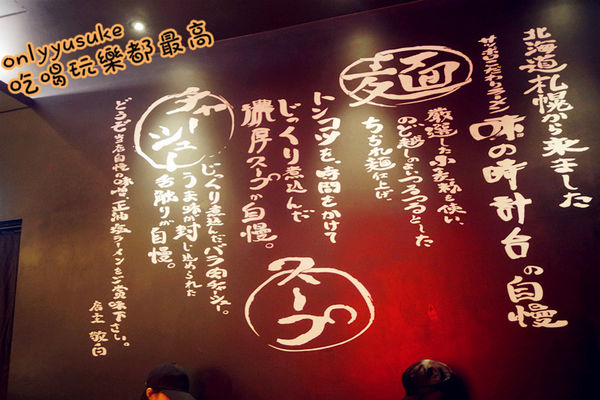 onlyyusuke
吃喝玩樂都最高
北海道札幌から来ました
サッポロこだわりラーメン
味の時計台の自慢
麺
厳選した小麦粉を使い、
のど越しのいいつるつるとした
ちぢれ麺仕上げ。
スープ
トンコツを、時間をかけて
じっくり煮込んだ
濃厚スープが自慢。
チャーシュー
じっくり煮込んだバラ肉チャーシュー。
うま味が封じ込められた
舌触りが自慢。
どうぞ当店自慢の味噌、正油、塩ラーメンをご賞味下さい。
店主 敬白